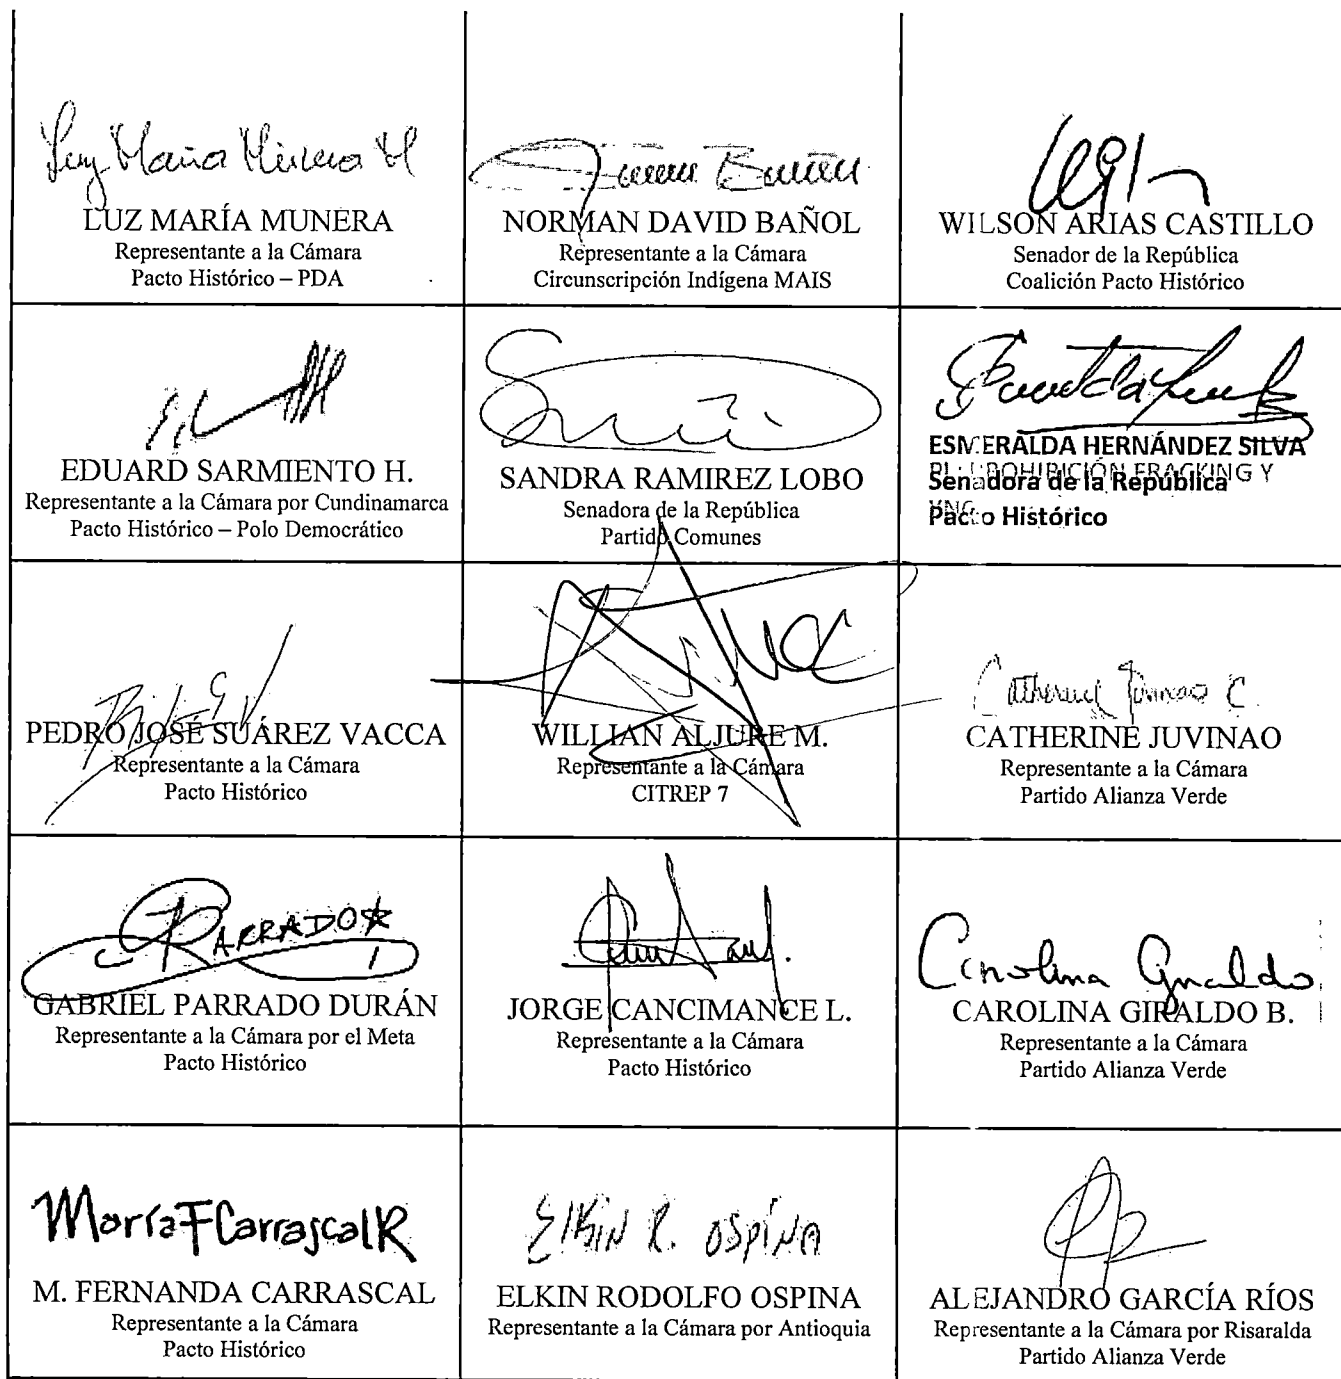 Luz María Múnera M
LUZ MARÍA MUNERA
Representante a la Cámara
Pacto Histórico – PDA
NORMAN DAVID BAÑOL
Representante a la Cámara
Circunscripción Indígena MAIS
WILSON ARIAS CASTILLO
Senador de la República
Coalición Pacto Histórico
EDUARD SARMIENTO H.
Representante a la Cámara por Cundinamarca
Pacto Histórico – Polo Democrático
SANDRA RAMIREZ LOBO
Senadora de la República
Partido Comunes
ESMERALDA HERNÁNDEZ SILVA
PL. PROHIBICIÓN FRACKING Y
Senadora de la República
YNC
Pacto Histórico
PEDRO JOSÉ SUÁREZ VACCA
Representante a la Cámara
Pacto Histórico
WILLIAN ALJURE M.
Representante a la Cámara
CITREP 7
Catherine Juvinao C.
CATHERINE JUVINAO
Representante a la Cámara
Partido Alianza Verde
PARRADO
GABRIEL PARRADO DURÁN
Representante a la Cámara por el Meta
Pacto Histórico
JORGE CANCIMANCE L.
Representante a la Cámara
Pacto Histórico
Carolina Giraldo
CAROLINA GIRALDO B.
Representante a la Cámara
Partido Alianza Verde
María F Carrascal R
M. FERNANDA CARRASCAL
Representante a la Cámara
Pacto Histórico
ELKIN R. OSPINA
ELKIN RODOLFO OSPINA
Representante a la Cámara por Antioquia
ALEJANDRO GARCÍA RÍOS
Representante a la Cámara por Risaralda
Partido Alianza Verde